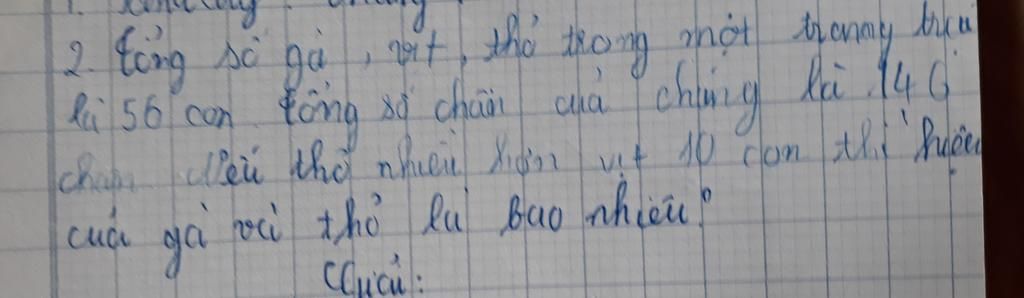 2. tổng số gà, vịt, thỏ trong một trang
là 56 con tổng số chân của chúng là 146
chân Nếu thỏ nhiều hơn vịt 10 con thì
của gà và thỏ là bao nhiêu?